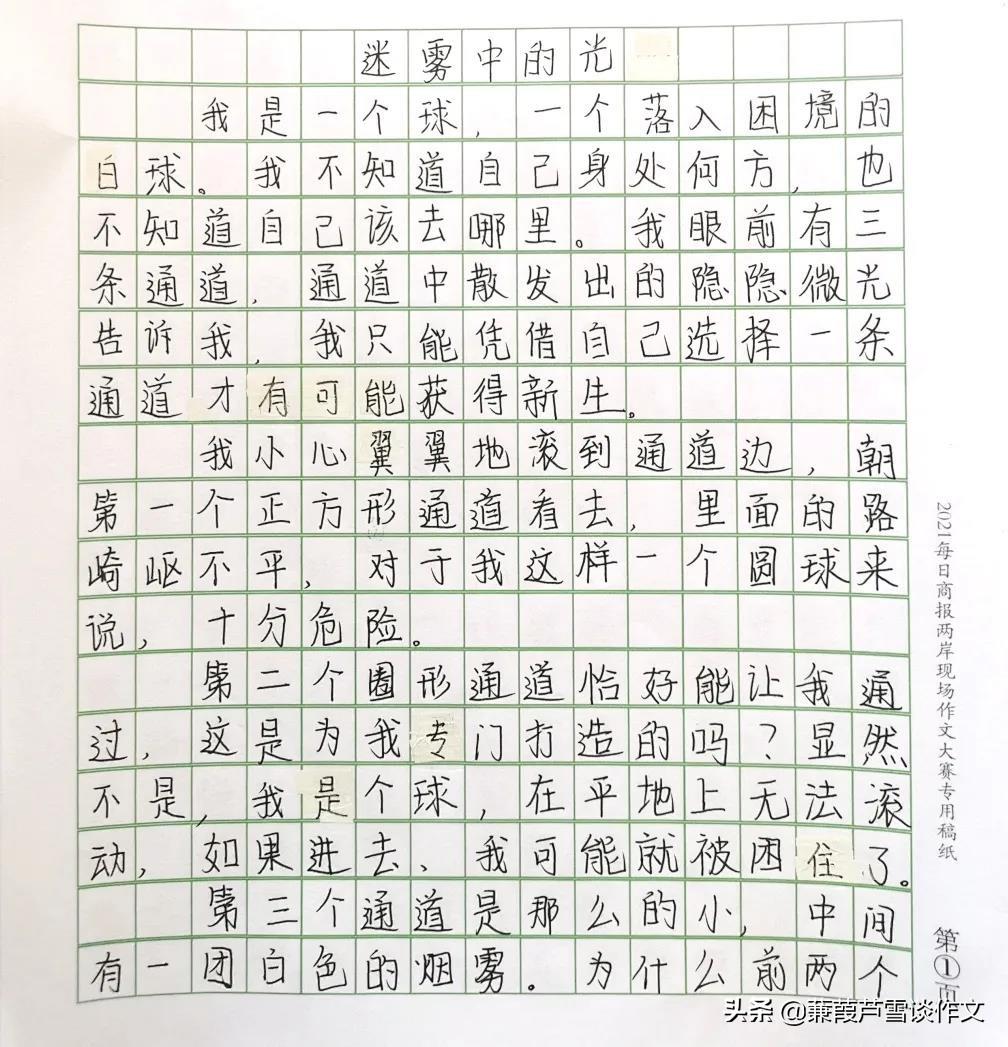 迷雾中的光
我是一个球,一个落入困境的
白球。我不知道自己身处何方,也
不知道自己该去哪里。我眼前有三
条通道,通道中散发出的隐隐微光
告诉我,我只能凭借自己选择一条
通道才有可能获得新生。
我小心翼翼地滚到通道边,朝
第一个正方形通道看去,里面的路
崎岖不平,对于我这样一个圆球来
说,十分危险。
第二个圈形通道恰好能让我通
过,这是为我专门打造的吗?显然
不是,我是个球,在平地上无法滚
动,如果进去、我可能就被困住了。
第三个通道是那么的小,中间
有一团白色的烟雾。为什么前两个
2021每日商报两岸现场作文大赛专用稿纸
第①页
头条 @蒹葭芦雪谈作文